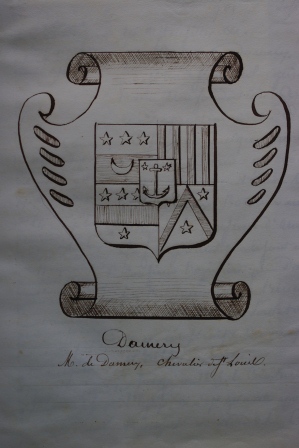 Damery
Mr de Damery, Chevalier St Louis.